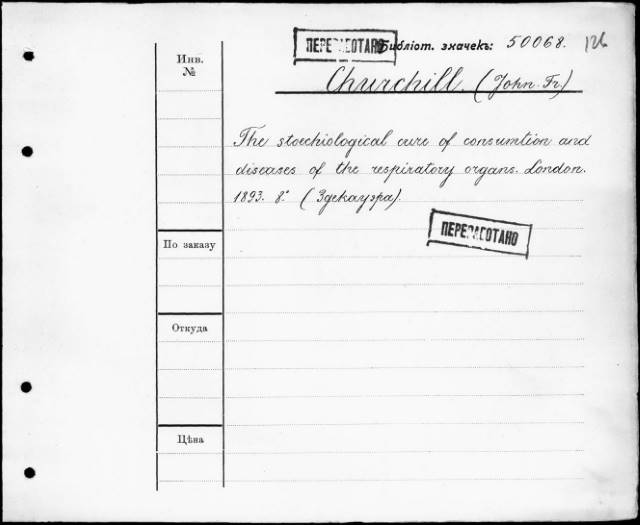 ПЕРЕРАБОТАНО
Библіот. значекъ: 50068. 126
Инв.
№
Churchill (John Fr.)
The stoechiological cure of consumtion and
diseases of the respiratory organs. London.
1893. 8°. (Здекауэра).
ПЕРЕРАБОТАНО
По заказу
Откуда
Цѣна